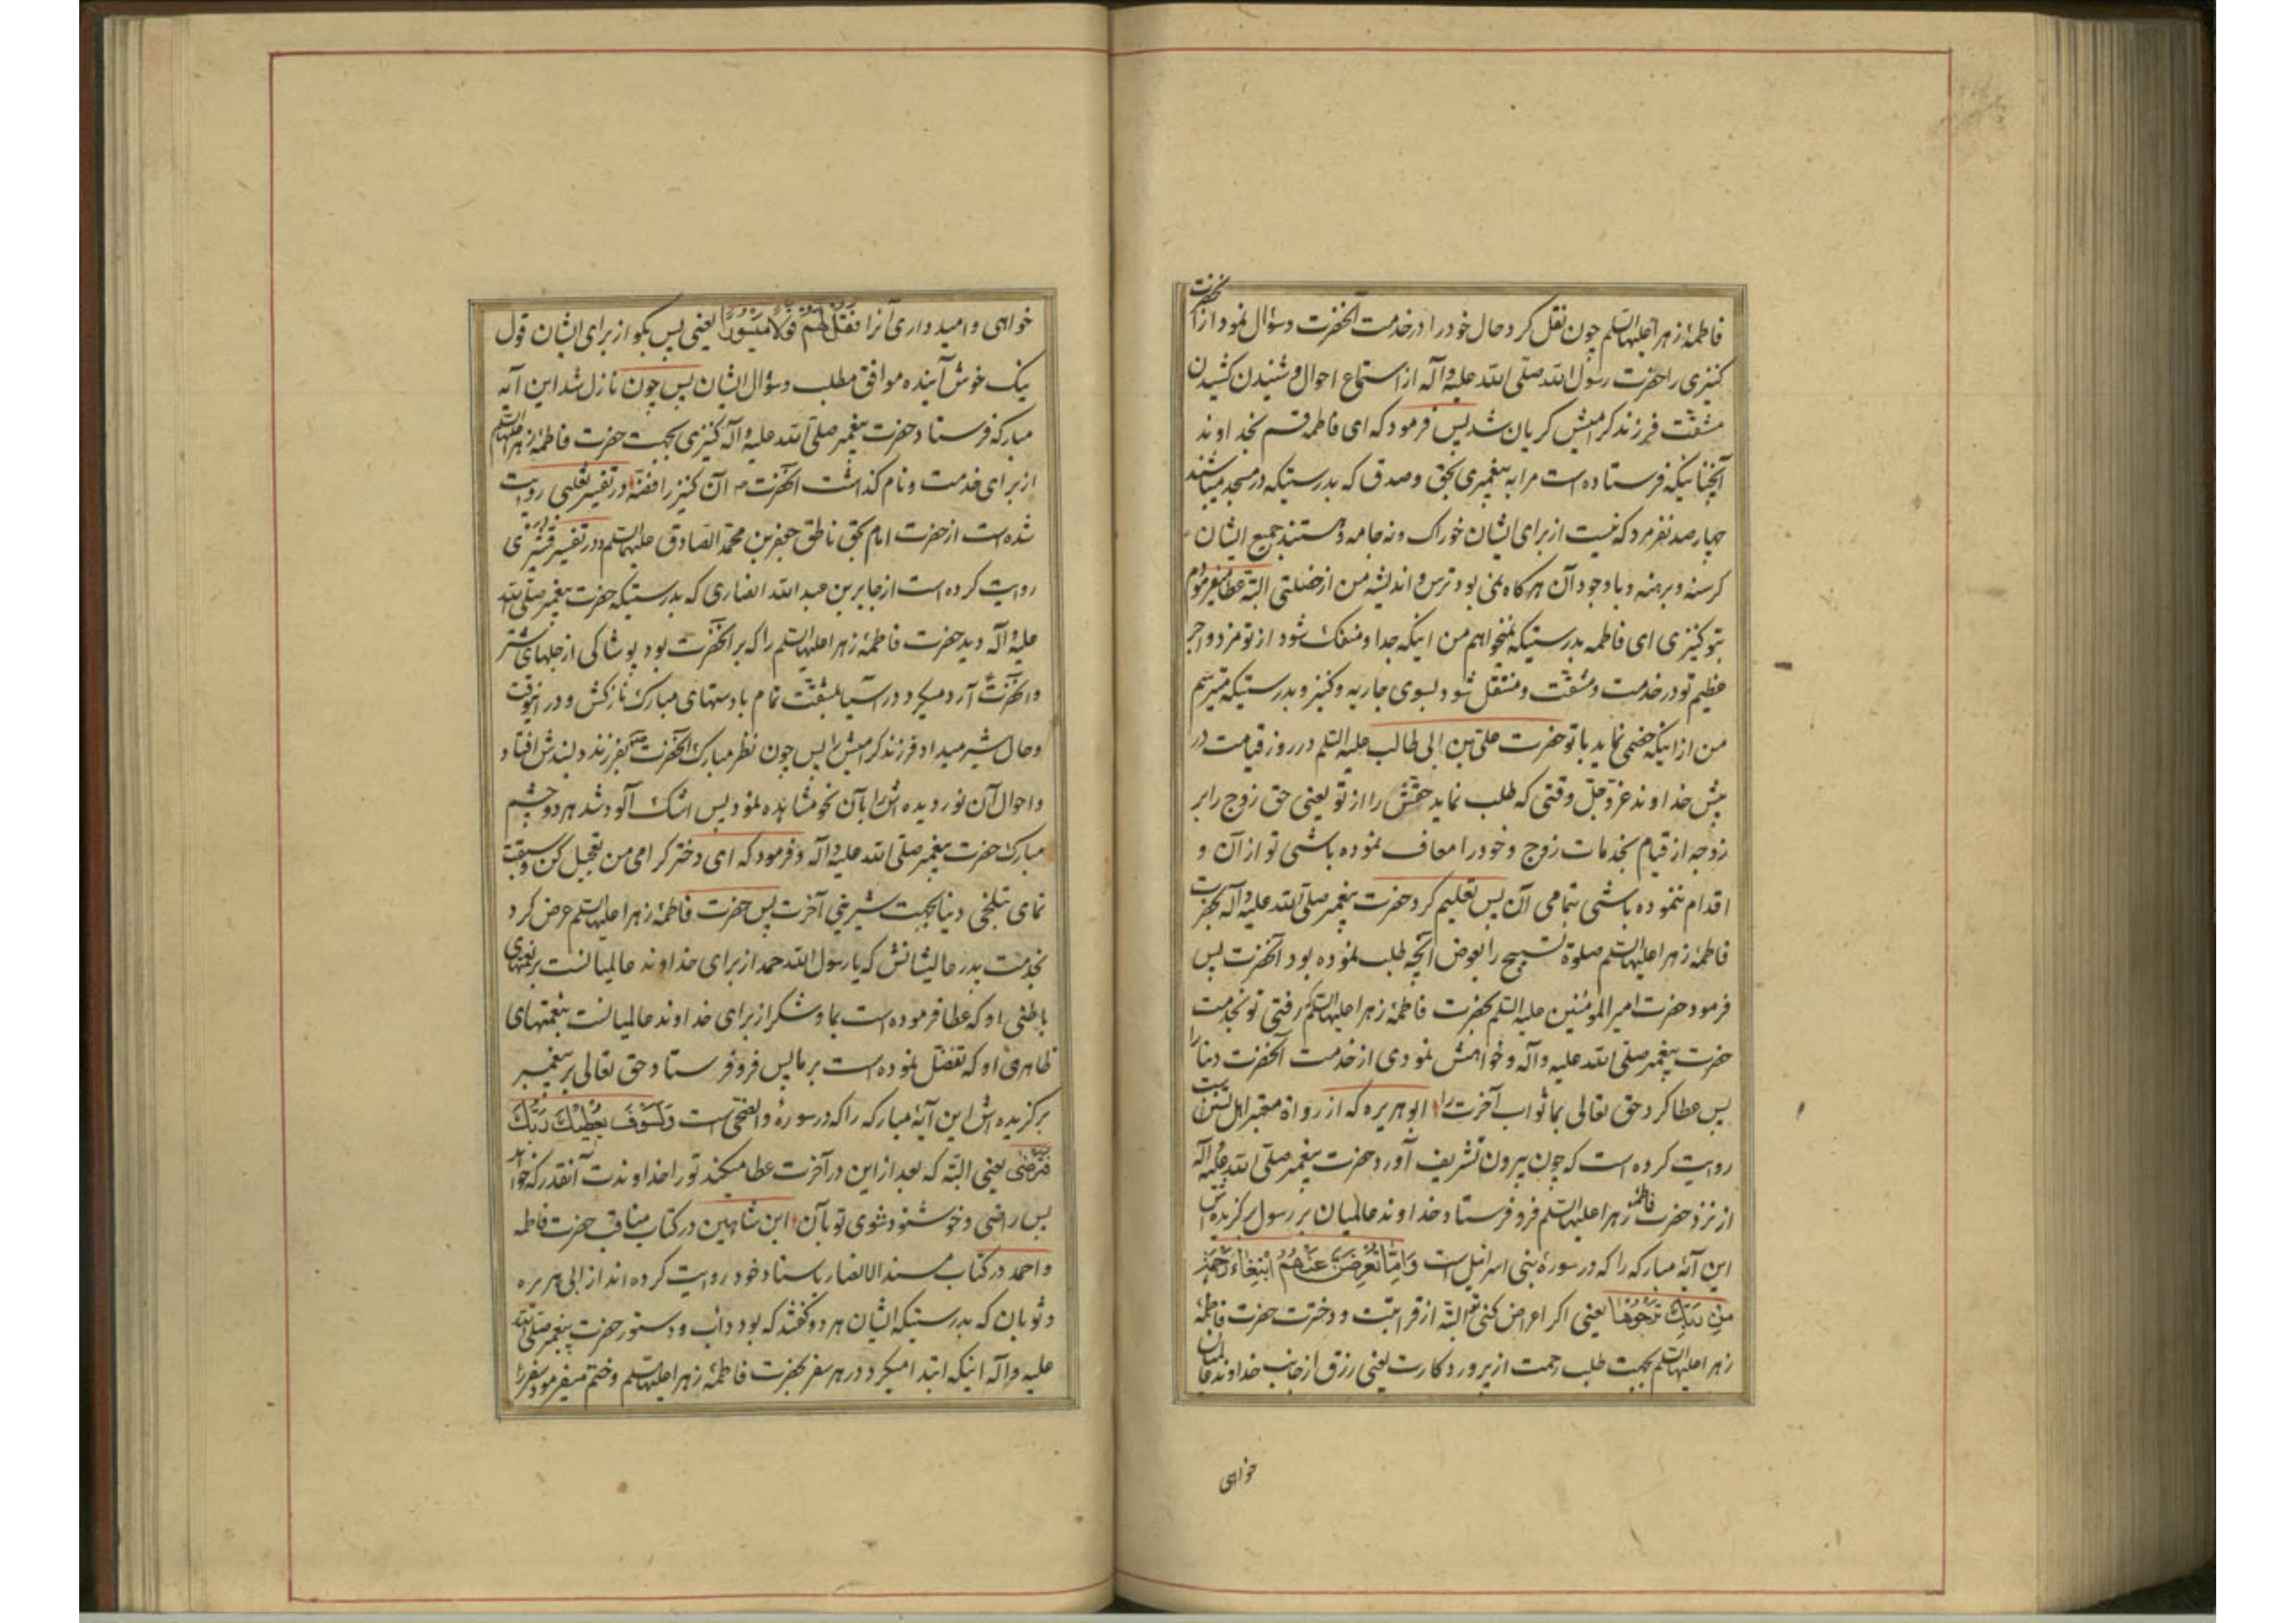 فاطمهٔ زهرا علیها السلم چون نقل کرد حال خود را در خدمت آنحضرت و سؤال نمود از آنحضرت
کنیزی را حضرت رسول الله صلی الله علیه و آله از استماع احوال و شنیدن کشیدن
مشقت فرزند کرامیش کریان شد پس فرمود که ای فاطمه قسم بخداوند
آنچنانیکه فرستاده است مرا به پیغمبری بحق و صدق که بدرستیکه در مسجد میباشند
چهار صد نفر مرد که نیست از برای ایشان خوراک و نه جامه و هستند جمیع ایشان
کرسنه و برهنه و با وجود آن هرکاه نمی بود ترس و اندیشه من از خصلتی البته عطا میفرمودم
بتو کنیزی ای فاطمه بدرستیکه نمیخواهم من اینکه جدا و منفک شود از تو مزد و اجر
عظیم تو در خدمت و مشقت و منتقل شود بسوی جاریه و کنیز و بدرستیکه میترسم
من از اینکه خصمی نماید با تو حضرت علی بن ابی طالب علیه السلم در روز قیامت در
پیش خداوند عز و جل وقتی که طلب نماید حقش را از تو یعنی حق زوج را بر
زوجه از قیام بخدمات زوج و خود را معاف نموده باشی تو از آن و
اقدام ننموده باشی بتمامی آن پس تعلیم کرد حضرت پیغمبر صلی الله علیه و آله بحضرت
فاطمهٔ زهرا علیها السلم صلوة تسبیح را بعوض آنچه طلب نموده بود آنحضرت پس
فرمود حضرت امیر المؤمنین علیه السلم بحضرت فاطمهٔ زهرا علیها السلم رفتی تو بخدمت
حضرت پیغمبر صلی الله علیه و آله و خواهش نمودی از خدمت آنحضرت دنیا را
پس عطا کرد حق تعالی بما ثواب آخرت را ابو هریره که از رواة معتبر اهل تسنن است
روایت کرده است که چون بیرون تشریف آورد حضرت پیغمبر صلی الله علیه و آله
از نزد حضرت فاطمهٔ زهرا علیها السلم فرو فرستاد خداوند عالمیان بر رسول برکزیده اش
این آیهٔ مبارکه را که در سورهٔ بنی اسرائیل است وَاِمّا تُعْرِضَنَّ عَنْهُمُ ابْتِغاءَ رَحْمَةٍ
مِنْ رَبِّكَ تَرْجُوها یعنی اکر اعراض کنی تو البته از قرابتت و دخترت حضرت فاطمهٔ
زهرا علیها السلم بجهت طلب رحمت از پروردکارت یعنی رزق از جانب خداوند عالمیان
خواهی
خواهی و امیدواری آنرا فَقُلْ لَهُمْ قَوْلًا مَيْسُورًا یعنی پس بکو از برای ایشان قول
نیک خوش آینده موافق مطلب و سؤال ایشان پس چون نازل شد این آیه
مبارکه فرستاد حضرت پیغمبر صلی الله علیه و آله کنیزی بجهت حضرت فاطمهٔ زهرا علیها السلم
از برای خدمت و نام کذاشت آنحضرت ص آن کنیز را فضه در تفسیر ثعلبی روایت
شده است از حضرت امام بحق ناطق جعفر بن محمد الصادق علیهما السلم و در تفسیر قشیری
روایت کرده است از جابر بن عبد الله انصاری که بدرستیکه حضرت پیغمبر صلی الله
علیه و آله دید حضرت فاطمهٔ زهرا علیها السلم را که بر آنحضرت بود پوشاکی از جلهای شتر
و آنحضرت آرد میکرد در آسیا بمشقت تمام با دستهای مبارک نازکش و در اینوقت
و حال شیر میداد فرزند کرامیش را پس چون نظر مبارک آنحضرت ص بفرزند دلبندش افتاد
و احوال آن نور دیده اش را بآن نحو مشاهده نمود پس اشک آلود شد هر دو چشم
مبارک حضرت پیغمبر صلی الله علیه و آله و فرمود که ای دختر کرامی من تعجیل کن و سبقت
نمای بتلخی دنیا بجهت شیرینی آخرت پس حضرت فاطمهٔ زهرا علیها السلم عرض کرد
بخدمت پدر عالیشانش که یا رسول الله حمد از برای خداوند عالمیانست بر نعمتهای
باطنی او که عطا فرموده است بما و شکر از برای خداوند عالمیانست بنعمتهای
ظاهری او که تفضل نموده است بر ما پس فرو فرستاد حق تعالی بر پیغمبر
برکزیده اش این آیهٔ مبارکه را که در سورهٔ والضحی است وَلَسَوْفَ يُعْطِيكَ رَبُّكَ
فَتَرْضٰى یعنی البته که بعد از این در آخرت عطا میکند تو را خداوندت آنقدر که خواهی
پس راضی و خوشنود شوی تو بآن ابن شاهین در کتاب مناقب حضرت فاطمه
و احمد در کتاب مسند الانصار باسناد خود روایت کرده اند از ابی هریره
و ثوبان که بدرستیکه ایشان هر دو کفتند که بود داب و دستور حضرت پیغمبر صلی الله
علیه و آله اینکه ابتدا میکرد در هر سفر بحضرت فاطمهٔ زهرا علیها السلم و ختم میفرمود سفر را